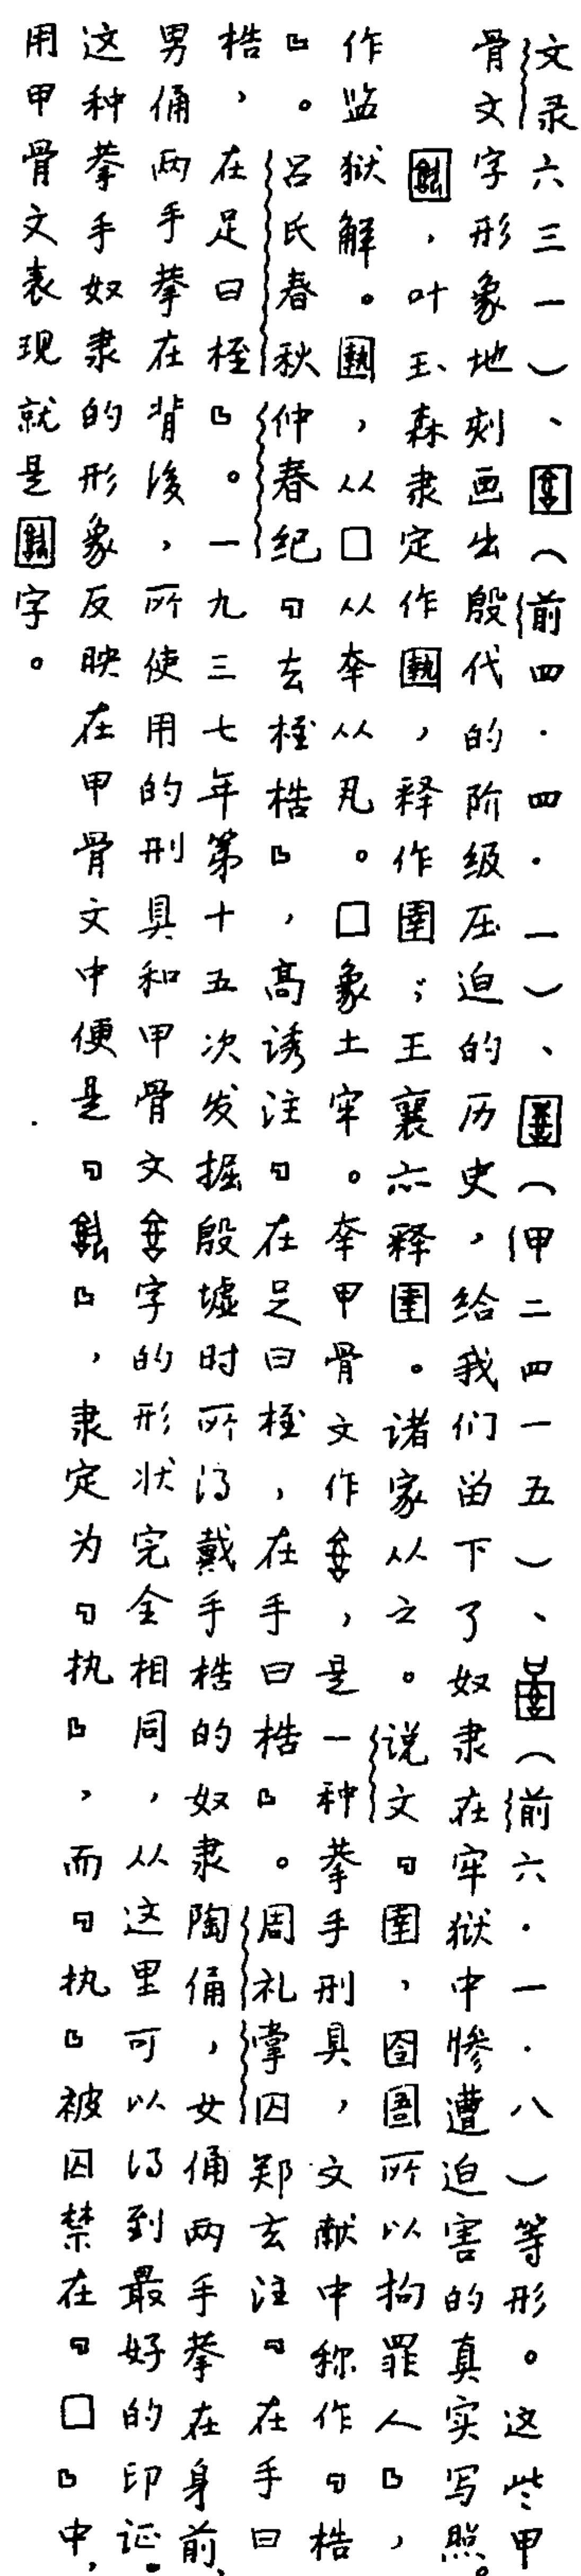 文录六三一）、（前四·四·一）、（甲二四一五）、（前六·一·八）等形。这些甲
骨文字形象地刻画出殷代的阶级压迫的历史，给我们留下了奴隶在牢狱中惨遭迫害的真实写照。
，叶玉森隶定作圞，释作圉；王襄亦释圉。诸家从之。说文『圉，囹圄所以拘罪人』，
作监狱解。，从囗从㚔从丮。囗象土牢。㚔甲骨文作，是一种拲手刑具，文献中称作『梏
』。吕氏春秋仲春纪『去桎梏』，高诱注『在足曰桎，在手曰梏』。周礼掌囚郑玄注『在手曰
梏，在足曰桎』。一九三七年第十五次发掘殷墟时所得戴手梏的奴隶陶俑，女俑两手拲在身前，
男俑两手拲在背後，所使用的刑具和甲骨文字的形状完全相同，从这里可以得到最好的印证。
这种拲手奴隶的形象反映在甲骨文中便是『』，隶定为『执』，而『执』被囚禁在『囗』中，
用甲骨文表现就是字。